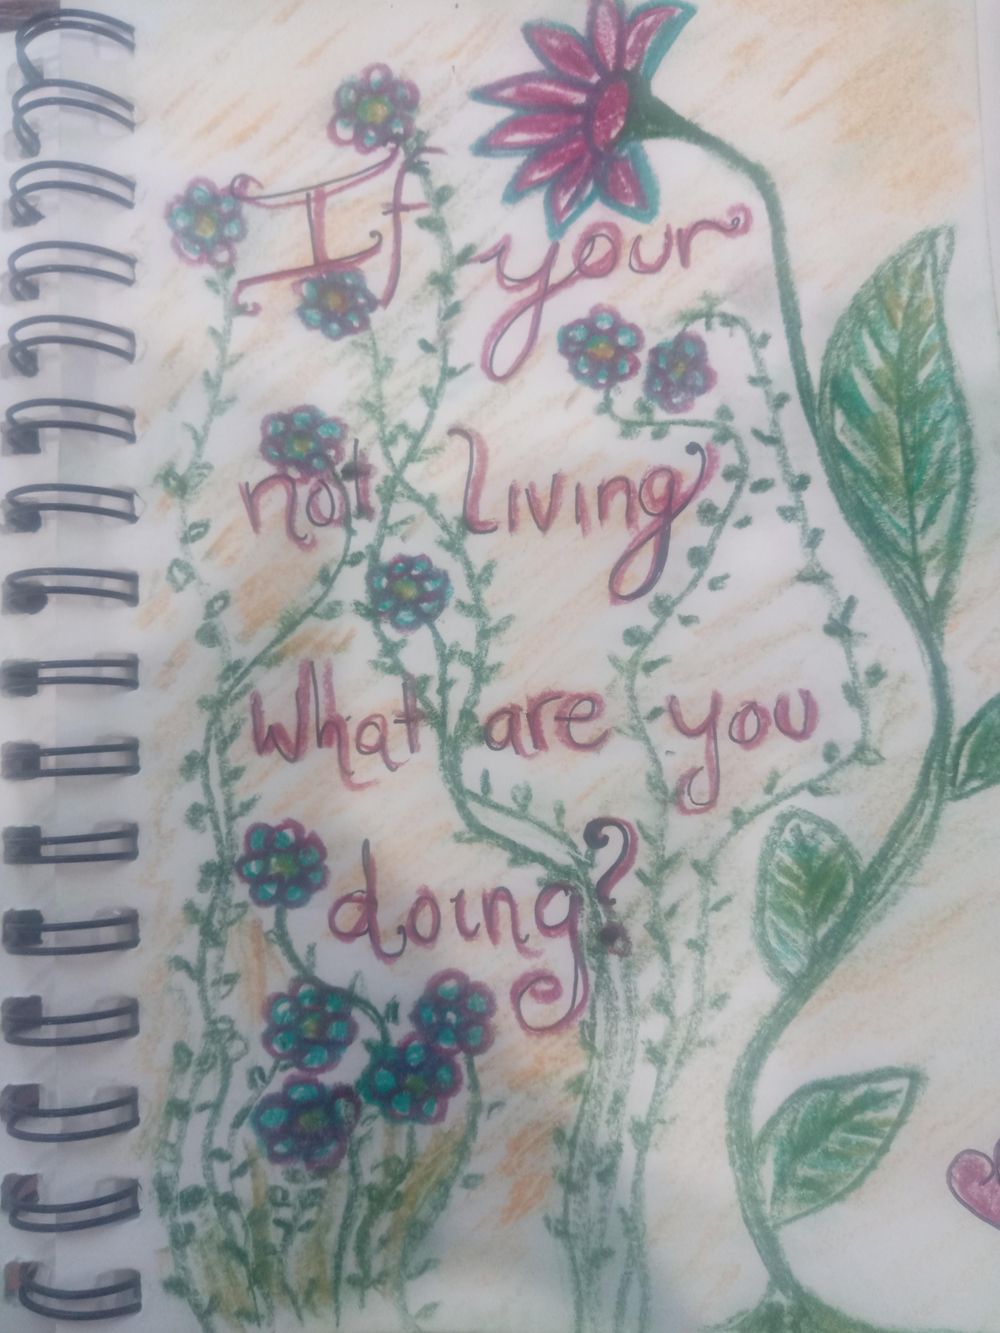 If your
not Living
What are you
doing?